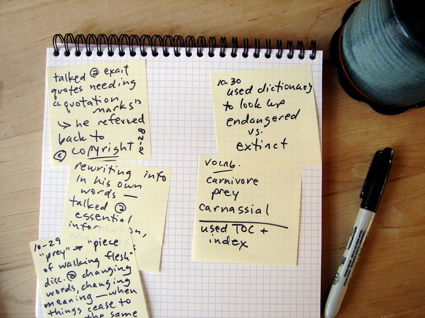 talked @ exact
quotes needing
quotation
marks
→ he referred
back to
© copyright
rewriting info
in his own
words —
talked @
essential
10-29
"prey" → "piece
of walking flesh"
disc. @ changing
words, changing
meaning — when
things cease to
the same
10-30
used dictionary
to look up
endangered
vs.
extinct
vocab.
carnivore
prey
carnassial
used TOC +
index